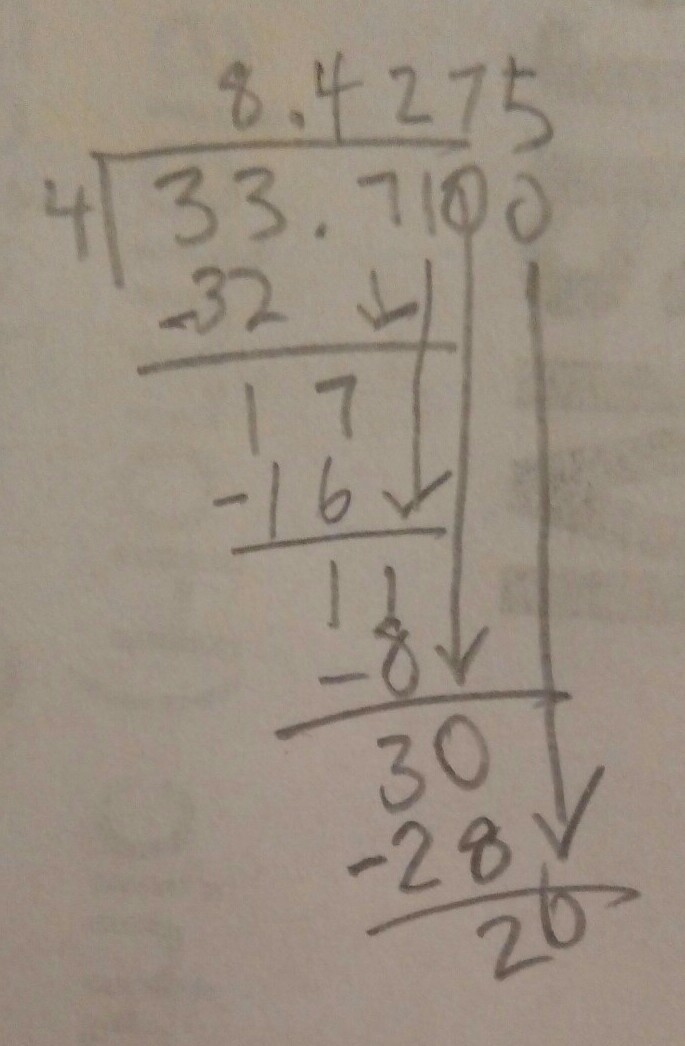 8.4275
4 33.7100
-32
17
-16
11
-8
30
-28
20